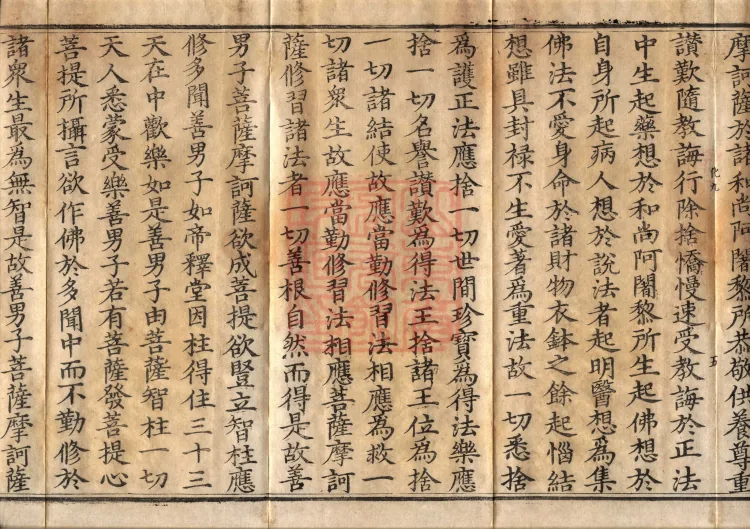 摩訶薩於諸和尚阿闍黎所恭敬供養尊重
讃歎隨教誨行除捨憍慢速受教誨於正法
化九
五
中生起藥想於和尚阿闍黎所生起佛想於
自身所起病人想於說法者起明醫想爲集
佛法不愛身命於諸財物衣鉢之餘起惱結
想雖具封禄不生愛著爲重法故一切悉捨
爲護正法應捨一切世間珍寶爲得法樂應
捨一切名譽讃歎爲得法王捨諸王位爲捨
一切諸結使故應當勤修習法相應爲救一
切諸衆生故應當勤修習法相應菩薩摩訶
薩修習諸法者一切善根自然而得是故善
男子菩薩摩訶薩欲成菩提欲豎立智柱應
修多聞善男子如帝釋堂因柱得住三十三
天在中歡樂如是善男子由菩薩智柱一切
天人悉蒙受樂善男子若有菩薩發菩提心
菩提所攝言欲作佛於多聞中而不勤修於
諸衆生最爲無智是故善男子菩薩摩訶薩